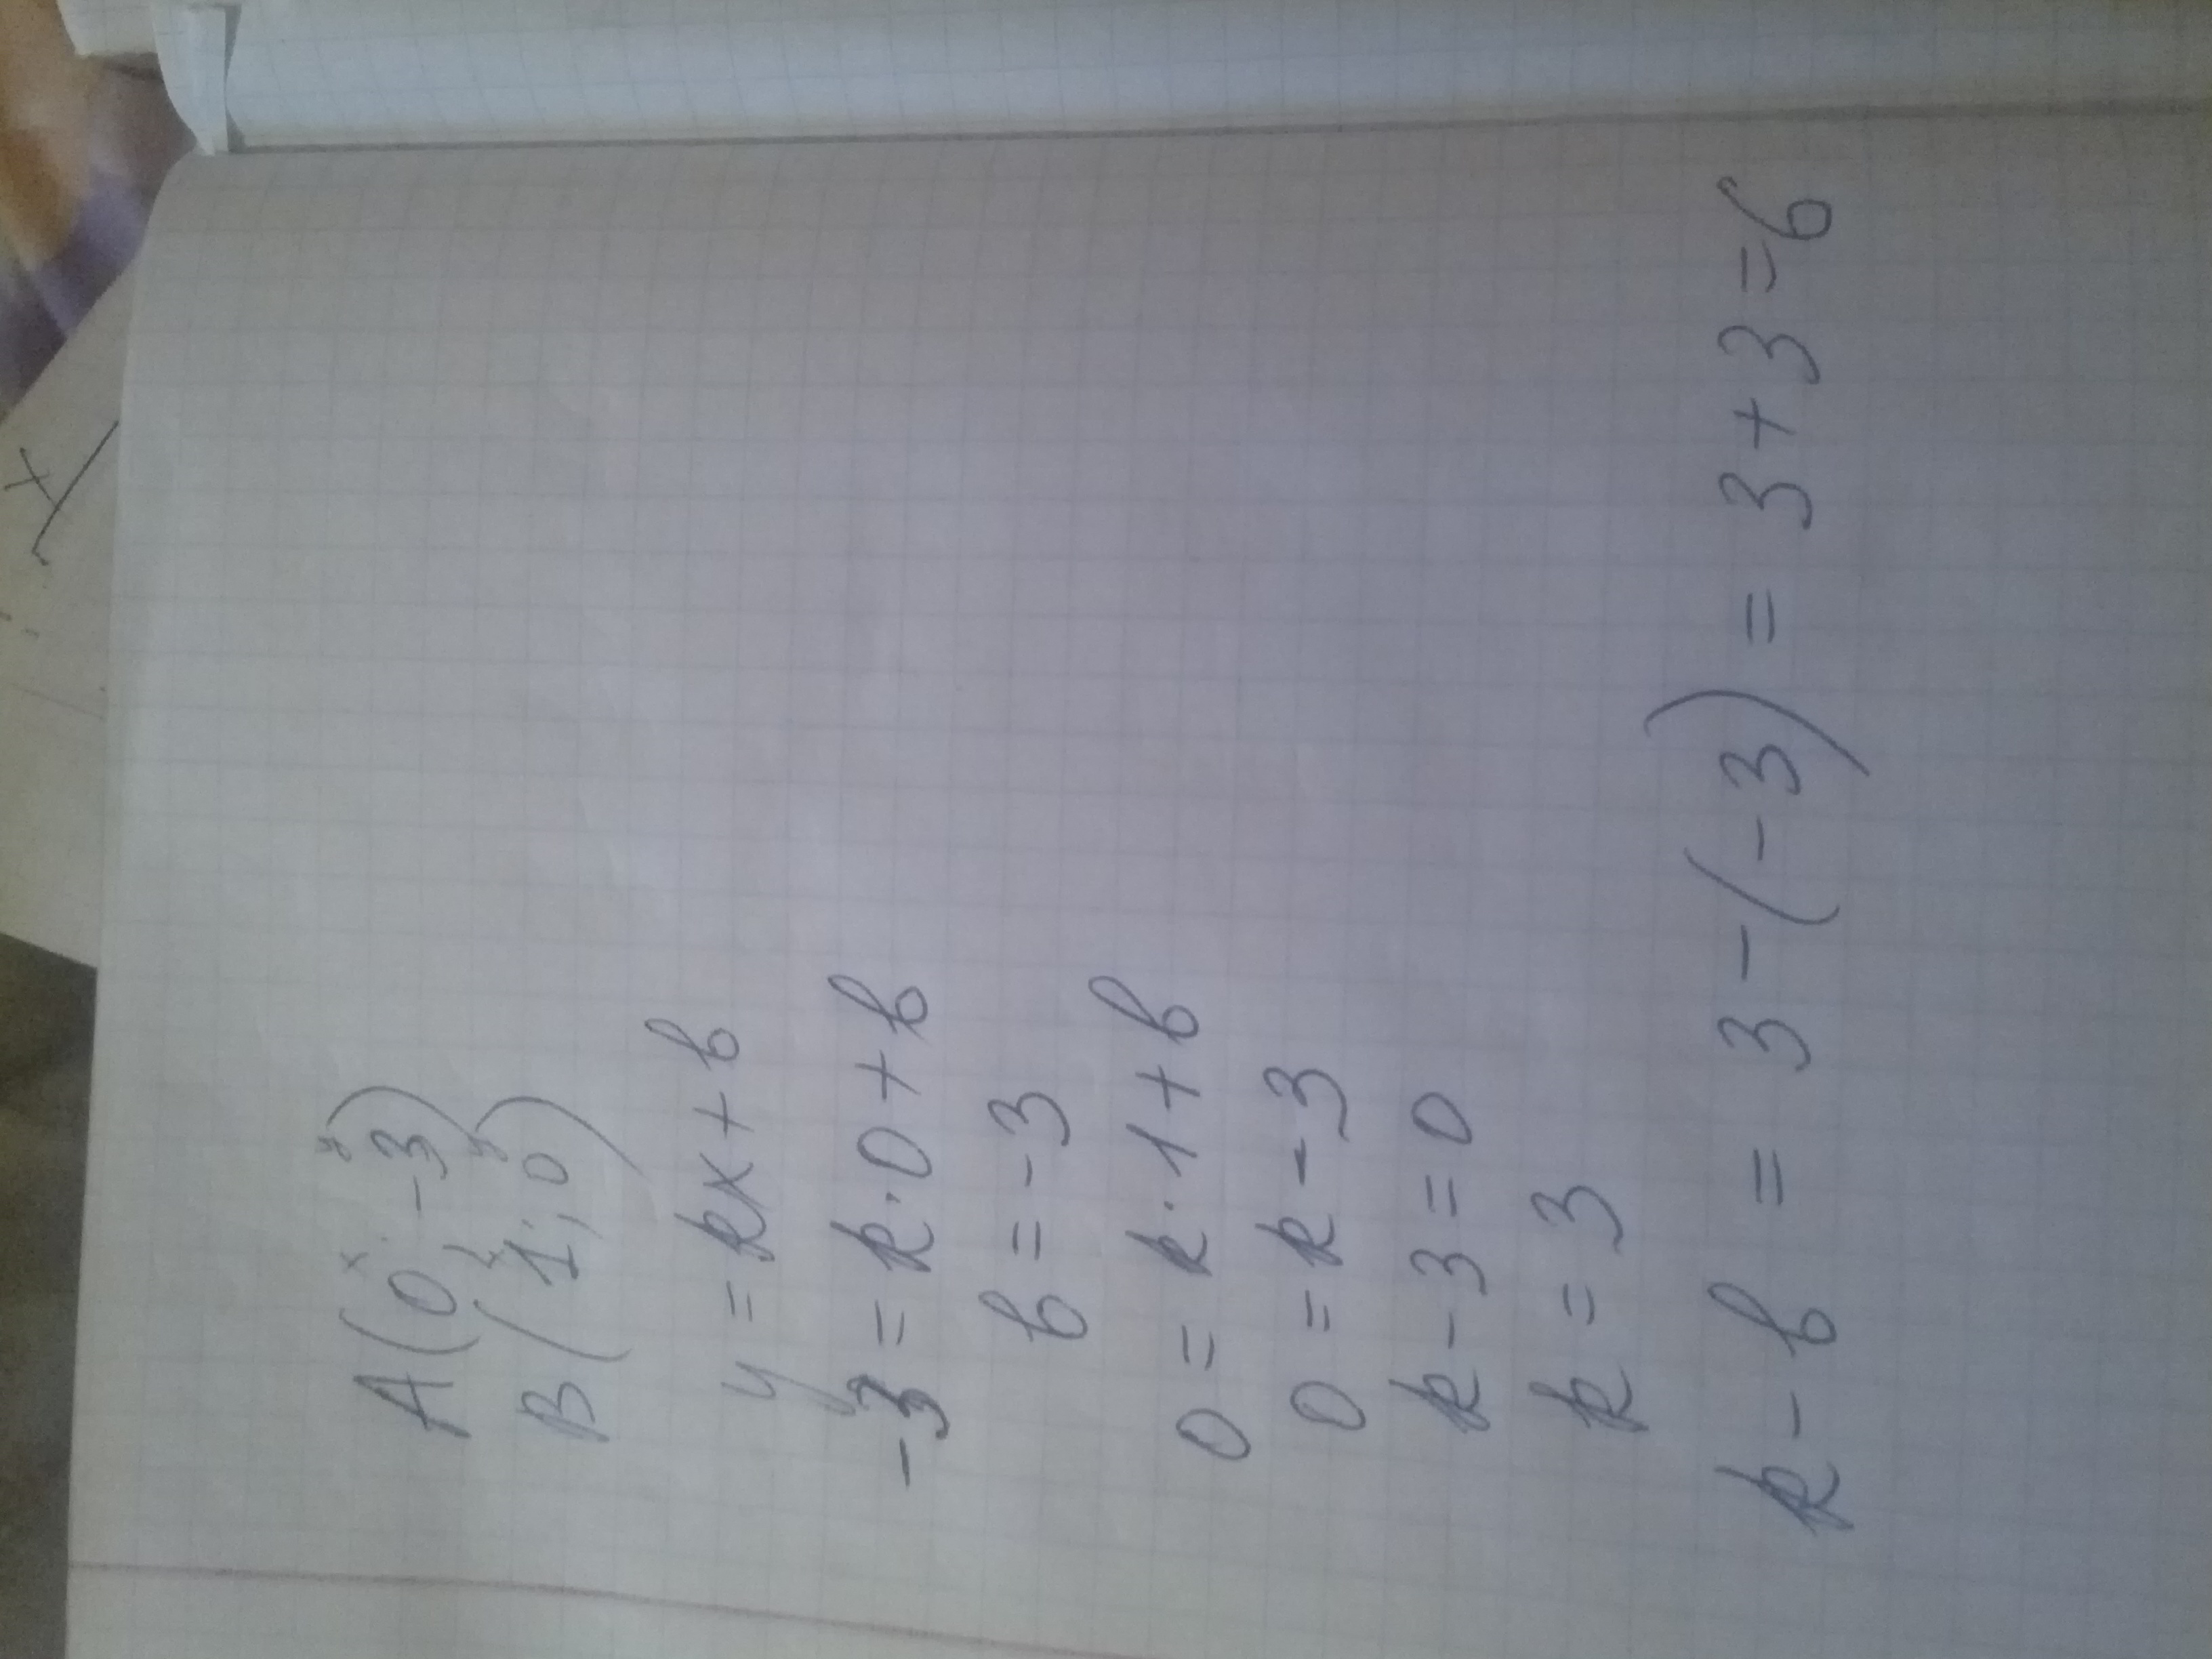 A(0; -3)
B(1; 0)
y = kx + b
-3 = k·0 + b
b = -3
0 = k·1 + b
0 = k - 3
k - 3 = 0
k = 3
k - b = 3 - (-3) = 3 + 3 = 6